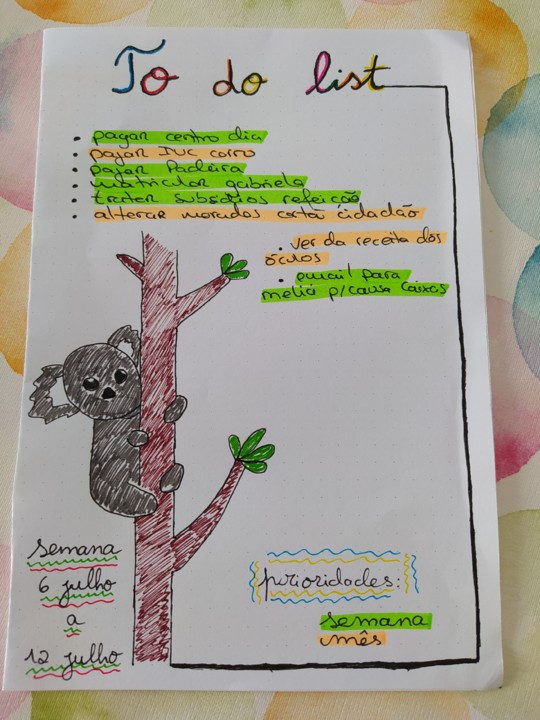 To do list
• pagar centro dia
• pagar IUC carro
• pagar Padeira
• matricular gabriela
• tratar subsídios refeição
• alterar moradas cartã cidadão
• ver da receita dos
óculos
• email para
meliá p/causa Caixas
semana
6 julho
a
12 julho
prioridades:
semana
mês